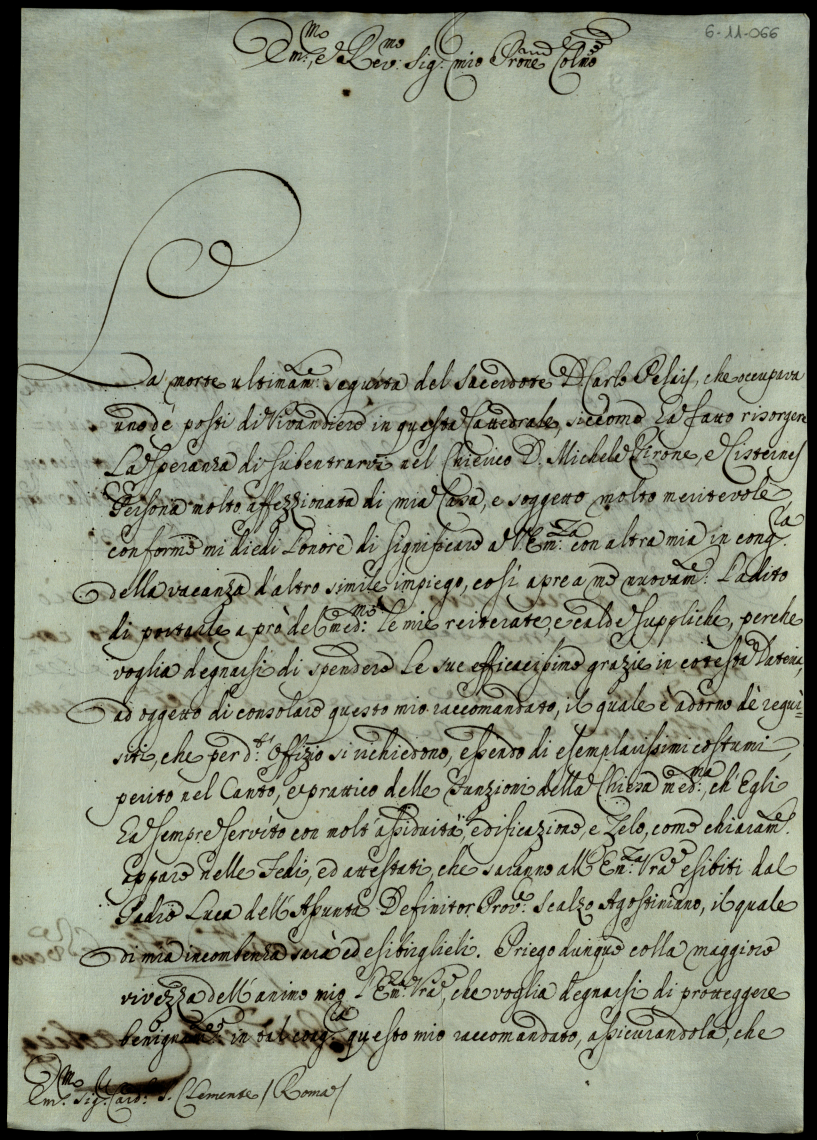 6-11-066
Em.mo, e Rev.mo Sig. mio Prone Colmo
La morte ultimam.e seguita del Sacerdote D. Carlo Pesais, che occupava
uno dè posti di Vivandiere in questa Cattedrale, siccome ha fatto risorgere
la speranza di subentrarvi nel Chierico D. Michele Zirone, e Cisternes
Persona molto affezzionata di mia Casa, e soggetto molto meritevole
conforme mi diedi l'onore di significare a V. Em.za con altra mia in cong.za
della vacanza d'altro simile impiego, così apre a me nuovam.e l'adito
di portarle a prò del med.mo le mie reiterate, e calde suppliche, perche
voglia degnarsi di spendere le sue efficacissime grazie in cotesta Dateria,
ad oggetto di consolare questo mio raccomandato, il quale è adorno dè requi-
siti, che per d.to Offizio si richiedono, essendo di esemplarissimi costumi,
perito nel Canto, e prattico delle Funzioni della Chiesa med.ma, ch'Egli
ha sempre servito con molt'assiduità, edificazione, e Zelo, come chiaram.e
appare nelle Fedi, ed attestati, che saranno all'Em.za Vra esibiti dal
Padre Luca dell'Assunta Definitor Prov.e Scalzo Agostiniano, il quale
di mia incombenza sarà ed esibirglieli. Priego dunque colla maggiore
vivezza dell'animo mio l'Em.za Vra, che voglia degnarsi di proteggere
benignam.e in tal cong.za questo mio raccomandato, assicurandola, che
Em.mo Sig. Card. S. Clemente / Roma /